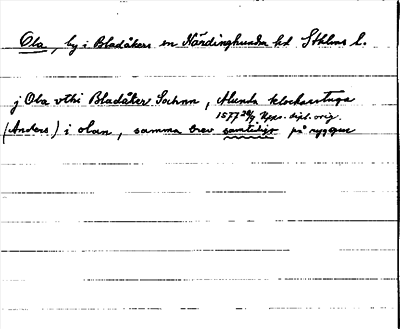 Ola, by i Bladåkers sn Närdinghundra hd Sthlms l.
j Ola vthi Bladåker Sochnn, Alunda klockarstuga
1577 28/7 Upps. dipl. orig.
(Anders) i olan, samma brev samtidigt på ryggen